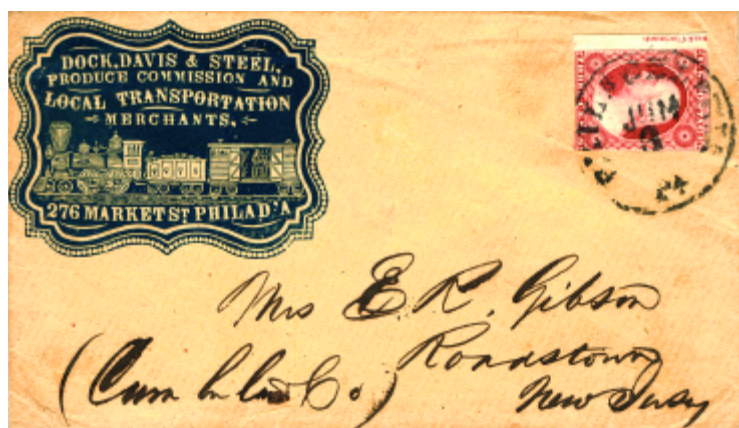 DOCK, DAVIS & STEEL,
PRODUCE COMMISSION AND
LOCAL TRANSPORTATION
MERCHANTS.
276 MARKET ST PHILAD'A
JUN
3
PA
Mrs E. R. Gibson
Roadstown
(Cumberland Co)
New Jersey